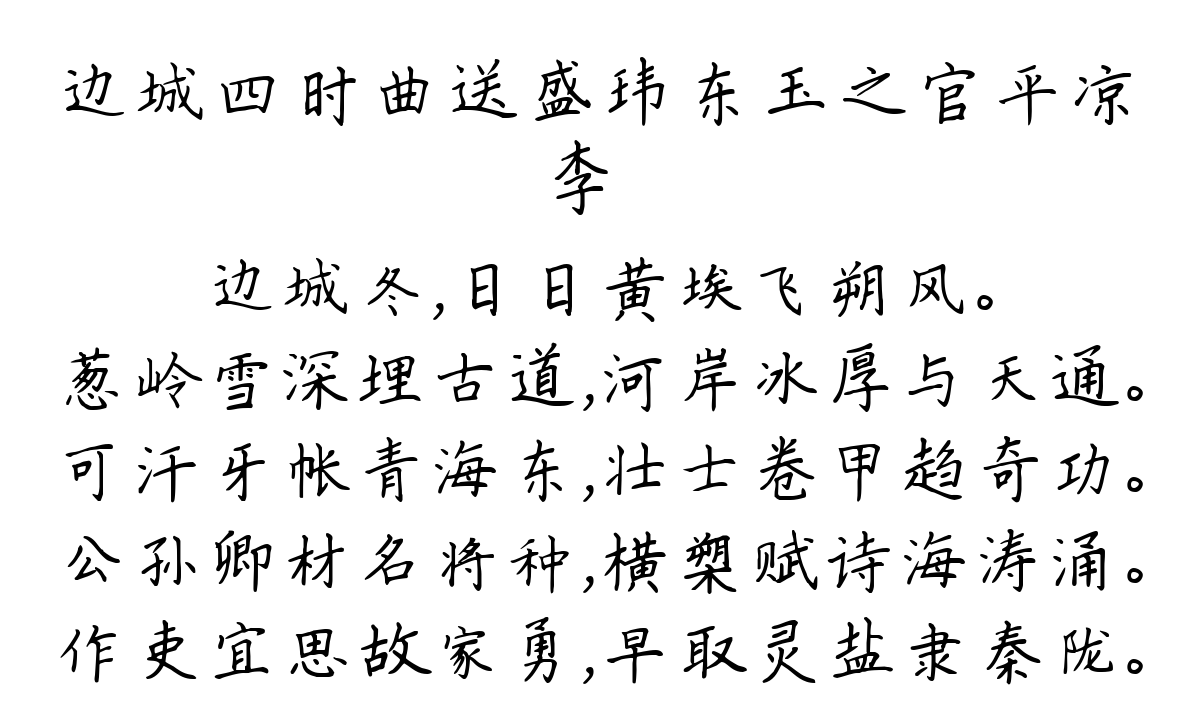 边城四时曲送盛玮东玉之官平凉
李
边城冬,日日黄埃飞朔风。
葱岭雪深埋古道,河岸冰厚与天通。
可汗牙帐青海东,壮士卷甲趋奇功。
公孙卿材名将种,横槊赋诗海涛涌。
作吏宜思故家勇,早取灵盐隶秦陇。